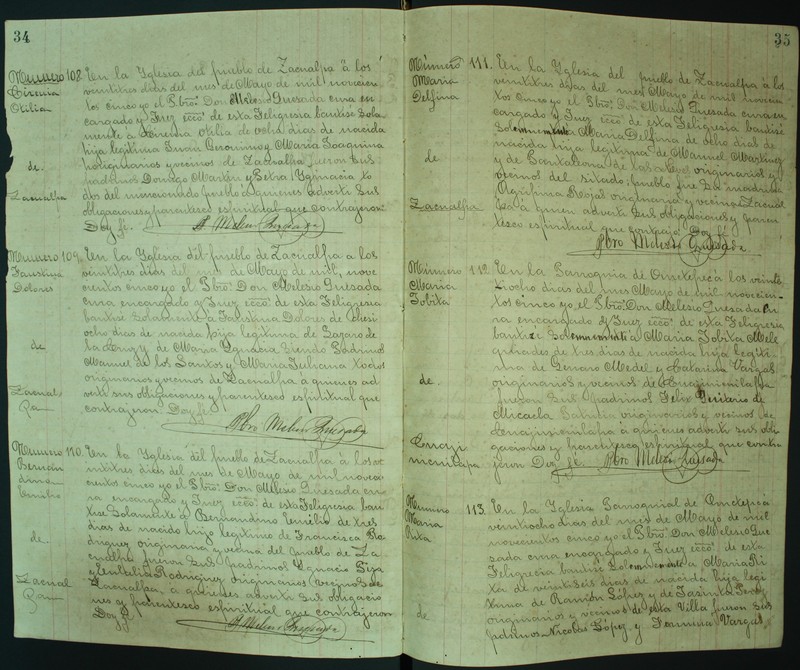 34
Numero 108. En la Yglesia del pueblo de Zacualpa á los
Otilia
de
Zacualpa
veintitres dias del mes de Mayo de mil novecien
tos cinco yo el Pbro. Don Melesio Quesada cura en
cargado y Juez ecco. de esta Feligresia bautisé Sola
mente a Otilia de ocho dias de nacida
hija legitima Juan Geronimo y Maria Joaquina
originarios y vecinos de Zacualpa fueron sus
padrinos Domingo Martin y Petra Ygnacia to
dos del mencionado pueblo a quienes adverti sus
obligaciones y parentesco espiritual que contrajeron.
Doy fé.
Numero 109. En la Yglesia del pueblo de Zacualpa a los
Faustino
Dolores
de
Zacual
pa
veintitres dias del mes de Mayo de mil nove
cientos cinco yo el Pbro. Don Melesio Quesada
cura encargado y Juez ecco. de esta Feligresia
bautisé Solamente a Dolores de dieci
ocho dias de nacido hijo legitimo de Lazaro de
la Cruz y de Maria Ygnacia siendo Padrinos
Manuel de los Santos y Maria Juliana todos
originarios y vecinos de Zacualpa á quienes ad
verti sus obligaciones y parentesco espiritual que
contrajeron. Doy fé.
Pbro Melesio Quesada
Numero 110. En la Yglesia del pueblo de Zacualpa á los ve
Bernar
dino
Emilio
de
Zacual
pa
intitres dias del mes de Mayo de mil nove
cientos cinco yo el Pbro. Don Melesio Quesada cu
ra encargado y Juez ecco. de esta Feligresia bau
tisé Solamente a Bernardino Emilio de tres
dias de nacido hijo legitimo de Francisca Ro
driguez originaria y vecina del pueblo de Za
cualpa fueron sus padrinos Ygnacio
y Rodriguez originarios y vecinos de
Zacualpa, a quienes adverti sus obligacio
nes y parentesco espiritual que contrajeron
Doy fé
35
Numero 111. En la Yglesia del pueblo de Zacualpa á los
Maria
Delfina
de
Zacualpa
veintitres dias del mes Mayo de mil novecien
tos cinco yo el Pbro. Don Melesio Quesada cura en
cargado y Juez ecco. de esta Feligresia bautisé
Solemnemente a Maria Delfina de ocho dias de
nacida hija legitima de Manuel Martinez
y de originarios y
vecinos del citado pueblo fue su madrina
Rojas originaria y vecina Zacual
pa á quien adverti sus obligaciones y paren
tesco espiritual que contrajo. Doy fé.
Pbro Melesio Quesada
Numero 112. En la Parroquia de Ometepec á los veinti
Maria
Tobita
de
ocho dias del mes Mayo de mil novecien
tos cinco yo el Pbro. Don Melesio Quesada cu
ra encargado y Juez ecco. de esta Feligresia
bautisé Solemnemente á Maria Tobita Mel
quiades de tres dias de nacida hija legiti
ma de Genaro Medel y Catarina Vargas
originarios y vecinos de
fueron sus padrinos
Micaela originarios y vecinos de
á quienes adverti sus obli
gaciones y parentesco espiritual que contra
jeron Doy fé.
Pbro Melesio Quesada
Numero 113. En la Yglesia Parroquial de Ometepec á
Maria
Rita
de
veintiocho dias del mes de Mayo de mil
novecientos cinco yo el Pbro. Don Melesio Que
sada cura encargado y Juez ecco. de esta
Feligresia bautisé Solemnemente a Maria Ri
ta de veintiseis dias de nacida hija legi
tima de Ramón López y de Jasinta Perez
originarios y vecinos de esta Villa fueron sus
padrinos Nicolas López y Vargas